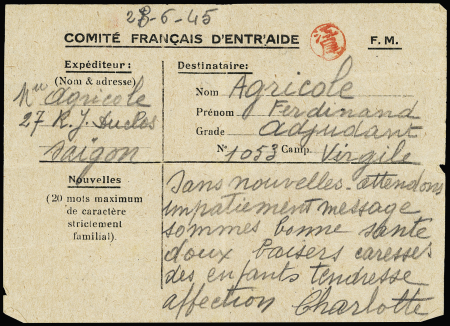 28-6-45
COMITÉ FRANÇAIS D'ENTR'AIDE
F. M.
Expéditeur :
(Nom & adresse)
Agricole
27 R. J. Duclos
Saigon
Nouvelles
(20 mots maximum
de caractère
strictement
familial).
Destinataire:
Nom Agricole
Prénom Ferdinand
Grade adjudant
N° 1053 Camp. Virgile
Sans nouvelles - attendons
impatiement message
sommes bonne santé
doux baisers caresses
des enfants tendresse
affection Charlotte